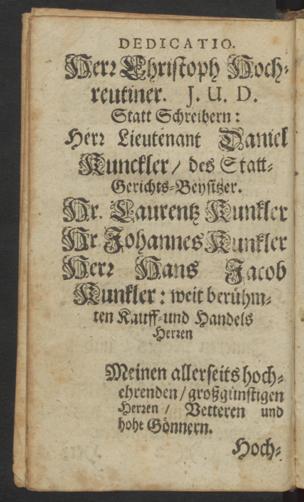 DEDICATIO.
Herr Christoph Hoch-
reutiner. J. U. D.
Statt Schreibern:
Herr Lieutenant Daniel
Kunckler / des Statt-
Gerichts-Beysitzer.
Hr. Laurentz Kunkler
Hr Johannes Kunkler
Herr Hans Jacob
Kunkler: weit berühm-
ten Kauff-und Handels
Herren
Meinen allerseits hoch-
ehrenden / großgünstigen
Herren / Vetteren und
hohe Gönnern.
Hoch-